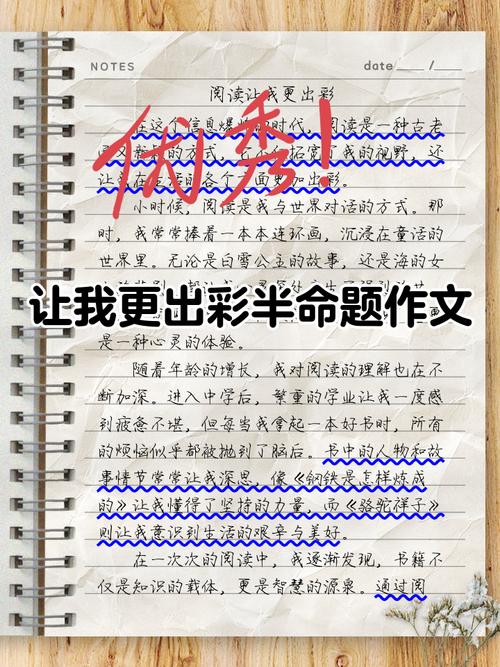 NOTES
date____ /___
阅读让我更出彩
优秀!
在这个信息爆 的时代,阅读是一种古老
的方式, 拓宽 我的视野,还
让 各个方面更加出彩。
小时候,阅读是我与世界对话的方式。那
时,我常常捧着一本本连环画,沉浸在童话的
世界里。无论是白雪公主的故事,还是海的女
让我更出彩半命题作文
是一种心灵的体验。
随着年龄的增长,我对阅读的理解也在不
断加深。进入中学后,繁重的学业让我一度感
到疲惫不堪,但每当我拿起一本好书时,所有
的烦恼似乎都被抛到了脑后。书中的人物和故
事情节常常让我深思,像《钢铁是怎样炼成
的》让我懂得了坚持的力量,而《骆驼祥子》
则让我意识到生活的艰辛与美好。
在一次次的阅读中,我逐渐发现,书籍不
仅是知识的载体,更是智慧的源泉。通过阅